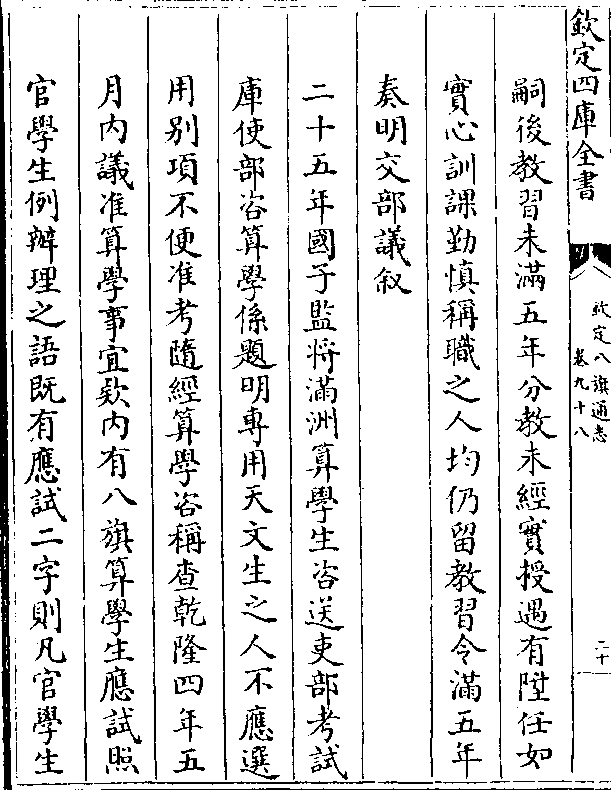 欽定四庫全書
欽定八旗通志
卷九十八
二十
嗣後教習未滿五年分教未經實授遇有陞任如
實心訓課勤慎稱職之人均仍留教習令滿五年
奏明交部議叙
二十五年國子監將滿洲算學生咨送吏部考試
庫使部咨算學係題明專用天文生之人不應選
用别項不便准考隨經算學咨稱查乾隆四年五
月内議准算學事宜欵内有八旗算學生應試照
官學生例辦理之語既有應試二字則凡官學生